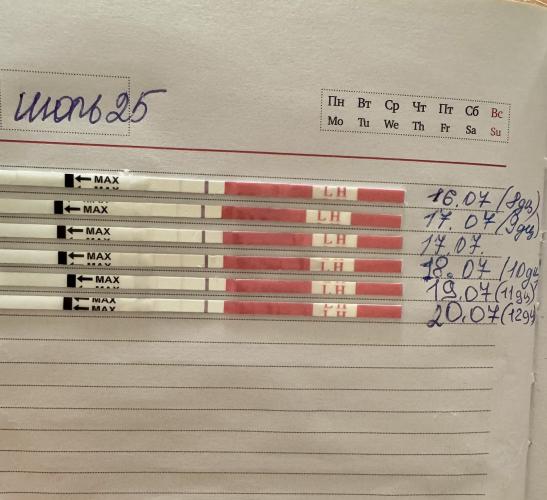 июль 25
Пн Вт Ср Чт Пт Сб Вс
Mo Tu We Th Fr Sa Su
MAX LH 16.07 (8дц)
MAX LH 17.07 (9дц)
MAX LH 17.07
MAX LH 18.07 (10дц
MAX LH 19.07 (11дц)
MAX LH 20.07 (12дц)